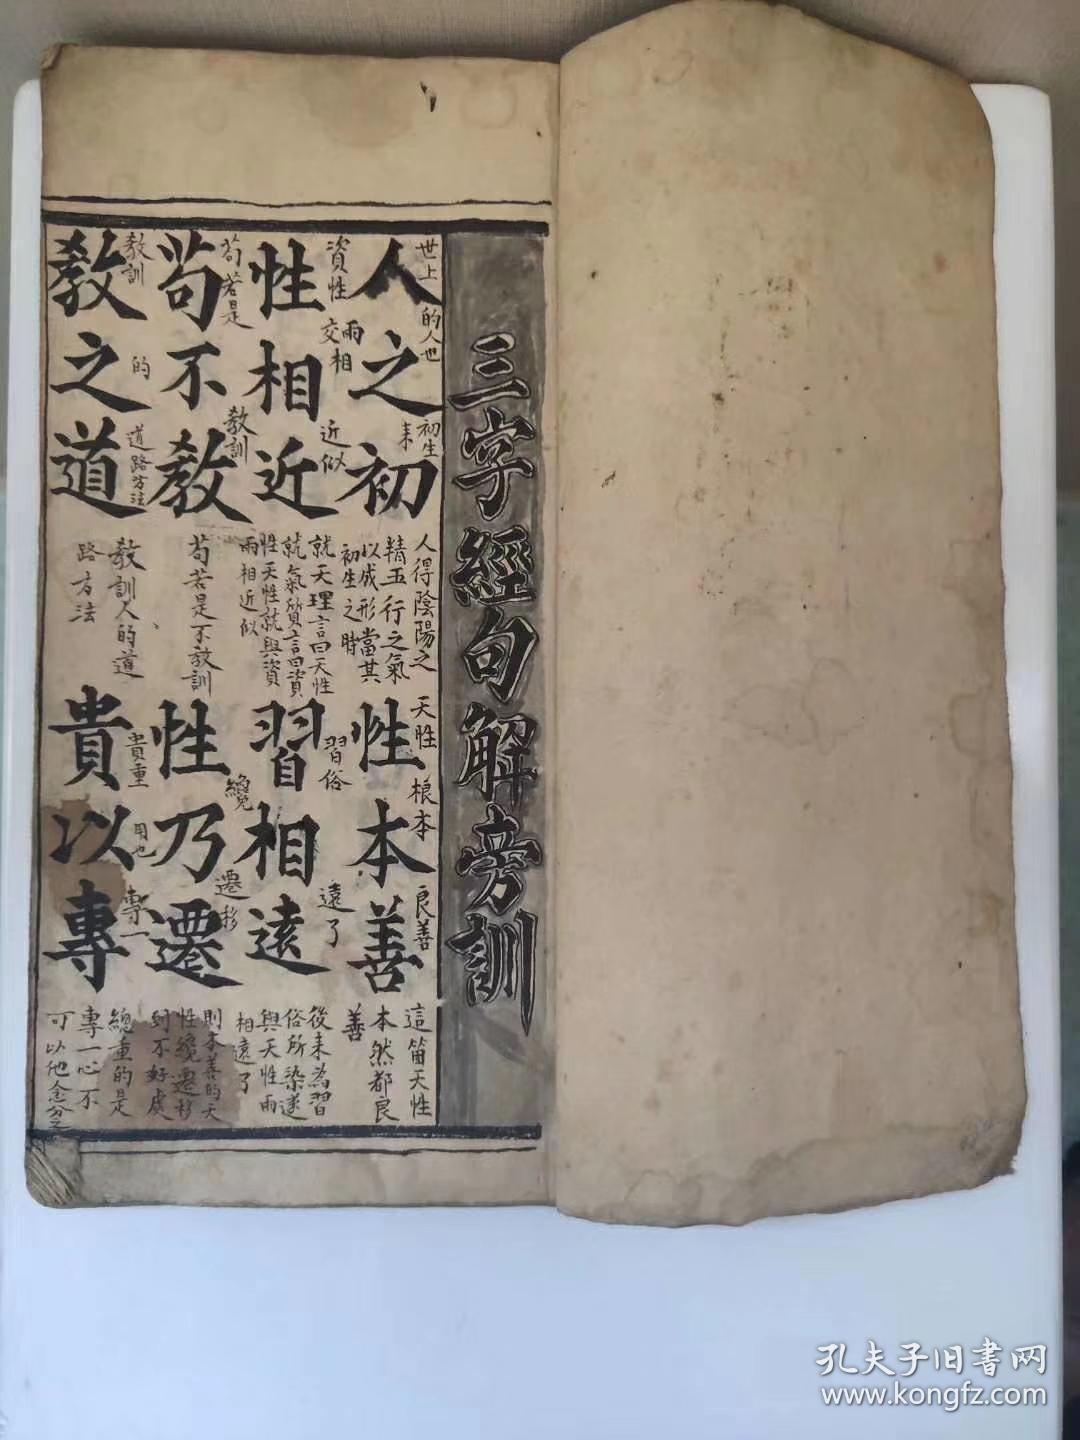 三字經句解旁訓
人之初
世上的人也
初生
耒
人得陰陽之
精五行之氣
以成形當其
初生之時
性本善
天性
根本
良善
這笛天性
本然都良
善
性相近
資性
兩相
交
近似
就天理言曰天性
就氣質言曰資
性天性就與資
兩相近似
習相遠
習俗
遠了
後耒為習
俗所染遂
與天性兩
相遠了
苟不教
苟若是
教訓
苟若是不放訓
性乃遷
纔
遷移
則本善的天
性纔遷移
到不好處
教之道
教訓
的
道路方法
教訓人的道
路方法
貴以專
貴重
用也
專一
總重的是
專一心不
可以他念分之
孔夫子旧書网
www.kongfz.com